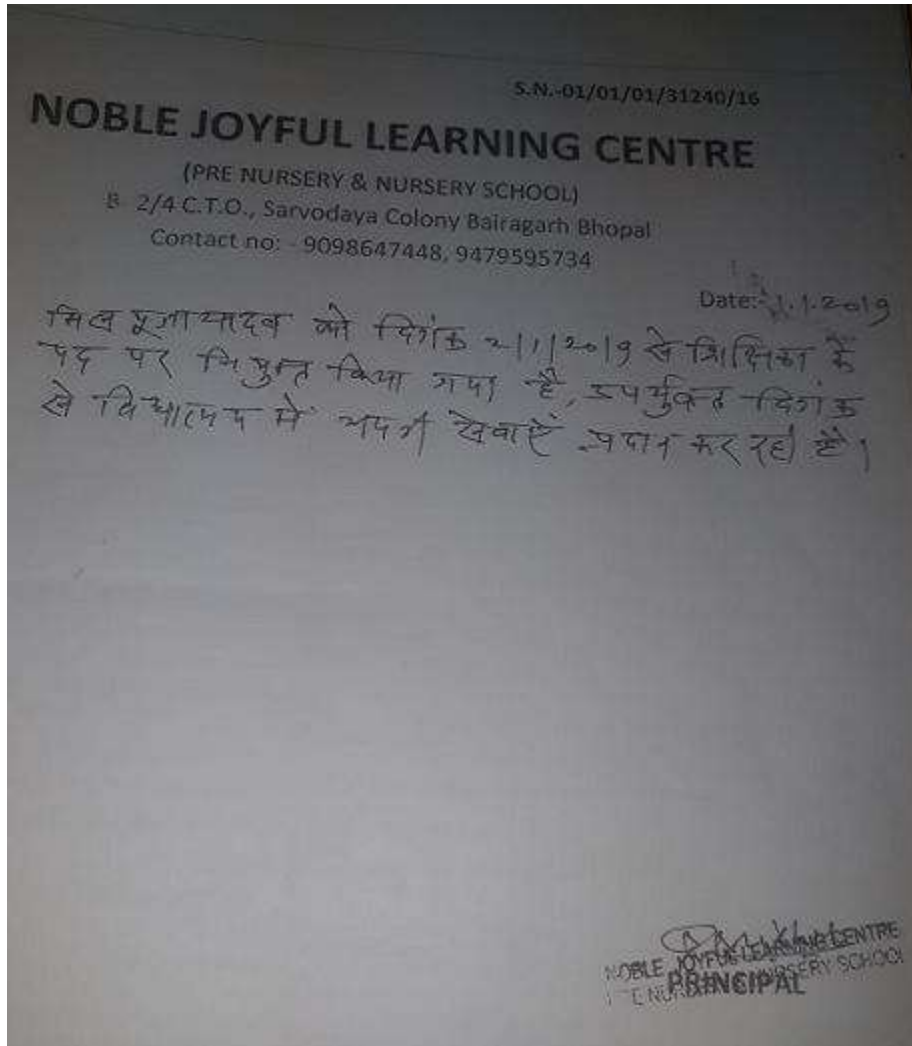 S.N.-01/01/01/31240/16
NOBLE JOYFUL LEARNING CENTRE
(PRE NURSERY & NURSERY SCHOOL)
B 2/4 C.T.O., Sarvodaya Colony Bairagarh Bhopal
Contact no: - 9098647448, 9479595734
Date: 1.1.2019
मिस पूजा यादव को दिनांक 2/1/2019 से शिक्षिका के
पद पर नियुक्त किया गया है, उपर्युक्त दिनांक
से विद्यालय में अपनी सेवाऐं प्रदान कर रही है।
NOBLE JOYFUL LEARNING CENTRE
NURSERY SCHOOL
PRINCIPAL